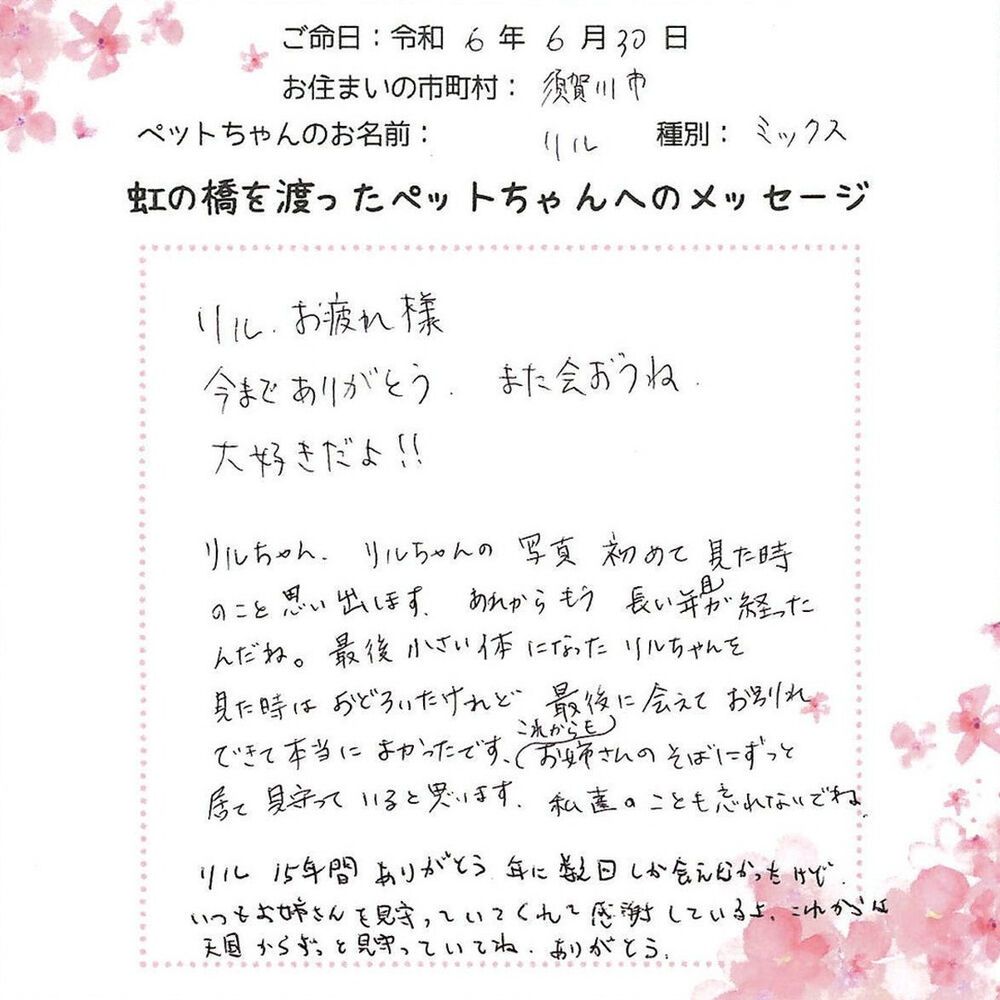 ご命日：令和 6 年 6 月 30 日
お住まいの市町村： 須賀川市
ペットちゃんのお名前： リル 種別： ミックス
虹の橋を渡ったペットちゃんへのメッセージ
リル、お疲れ様
今までありがとう、また会おうね、
大好きだよ!!
リルちゃん、リルちゃんの 写真 初めて 見た時
のこと 思い出します、あれからもう 長い年月が経った
んだね。最後 小さい体 になった リルちゃんを
見た時は おどろいたけれど 最後に会えて お別れ
できて本当に よかったです、これからもお姉さんのそばにずっと
居て 見守って いると思います、私達のことも忘れないでね、
リル 15年間 ありがとう 年に数回しか会えなかったけど、
いつもお姉さんを見守っていてくれて感謝しているよ、これからは
天国からずっと見守っていてね、ありがとう、